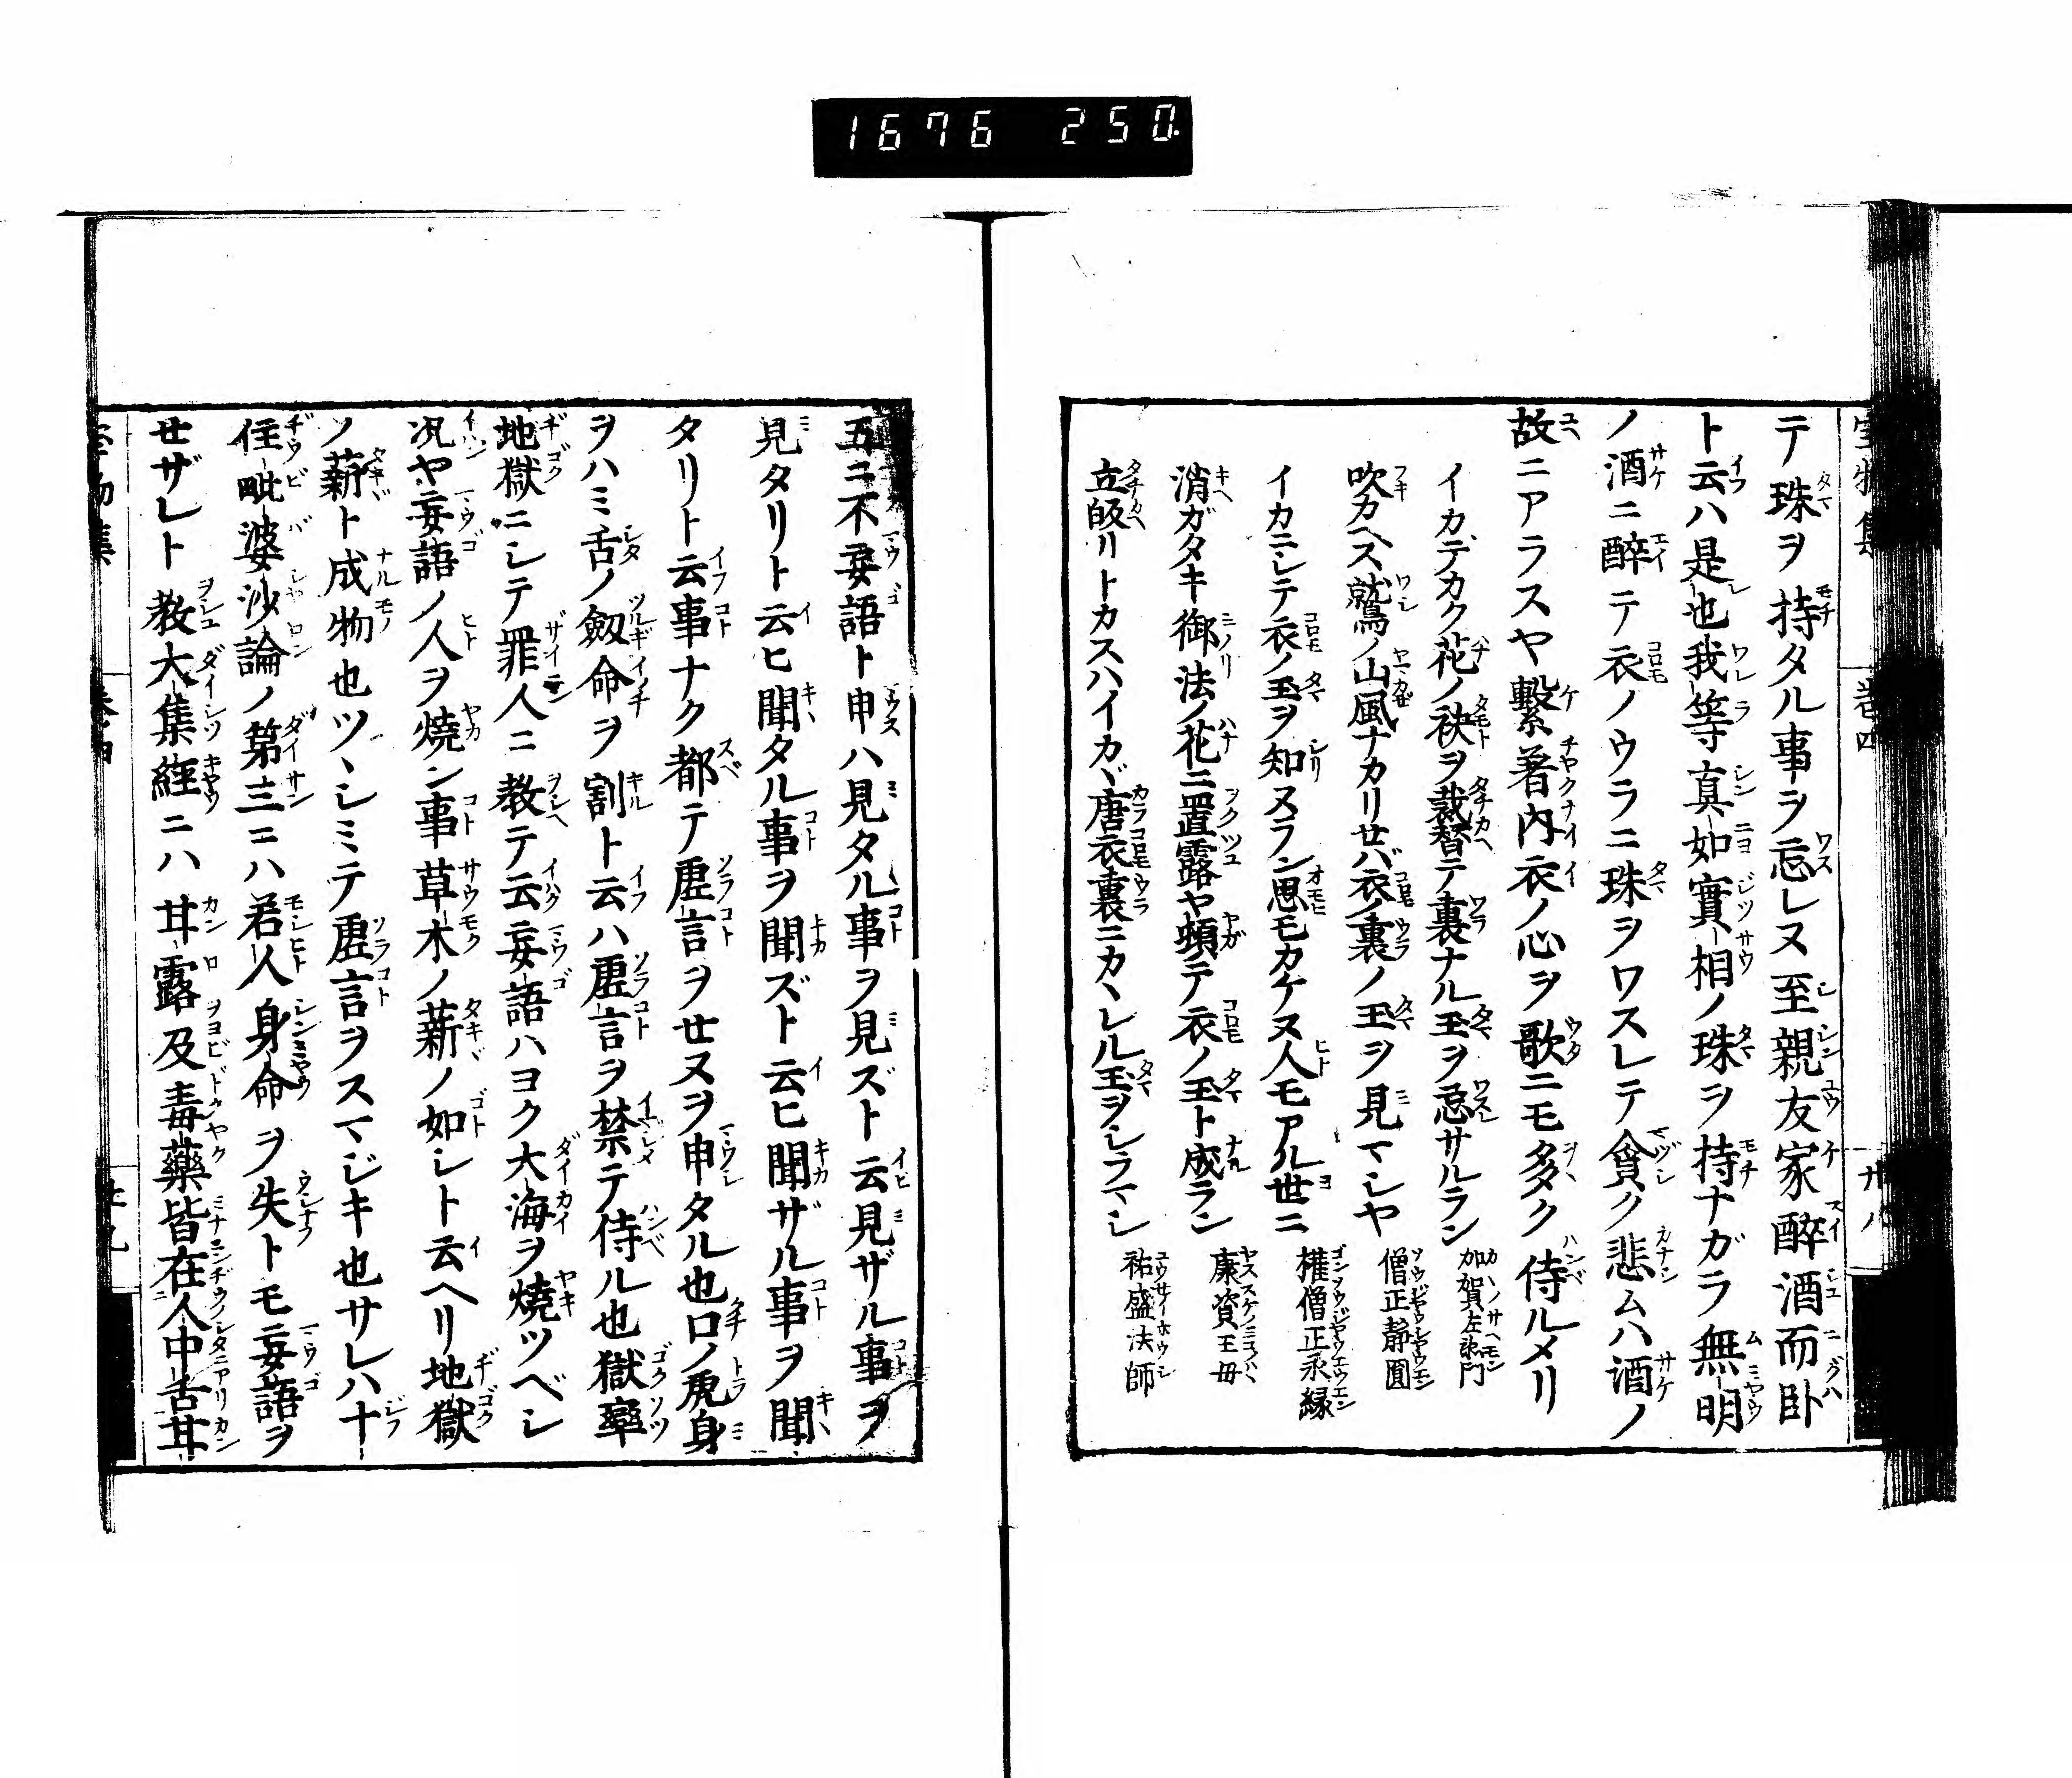 1676 250.
テ珠ヲ持タル事ヲ忘レヌ至親友家醉酒而臥
ト云ハ是也我等真如實相ノ珠ヲ持ナガラ無明
ノ酒ニ醉テ衣ノウラニ珠ヲワスレテ貪ク悲ムハ酒ノ
故ニアラスヤ繋著内衣ノ心ヲ歌ニモ多ク侍ルメリ
イカデカク花ノ袂ヲ裁替テ裏ナル玉ヲ忘サルラン 加賀左衛門
吹カヘス鷲ノ山風ナカリせバ衣ノ裏ノ玉ヲ見マシヤ 僧正靜圓
イカニシテ衣ノ玉ヲ知ヌラン思モカケヌ人モアル世ニ 権僧正永縁
消ガタキ御法ノ花ニ置露ヤ頓テ衣ノ玉ト成ラン 康資王母
立皈リトカスハイカヾ唐衣裏ニカヽレル玉ヲシラマシ 祐盛法師
五ニ不妄語ト申ハ見タル事ヲ見ズト云見ザル事ヲ
見タリト云ヒ聞タル事ヲ聞ズト云ヒ聞ザル事ヲ聞
タリト云事ナク都テ虚言ヲせヌヲ申タル也口ノ虎身
ヲハミ舌ノ劔命ヲ割ト云ハ虚言ヲ禁テ侍ル也獄率
地獄ニシテ罪人ニ教テ云妄語ハヨク大海ヲ燒ツベシ
况ヤ妄語ノ人ヲ燒ン事草木ノ薪ノ如シト云ヘリ地獄
ノ薪ト成物也ツヽシミテ虚言ヲスマジキ也サレハ十
住毗婆沙論ノ第三ニハ若人身命ヲ失トモ妄語ヲ
せザレト教大集經ニハ甘露及毒藥皆在人中舌甘